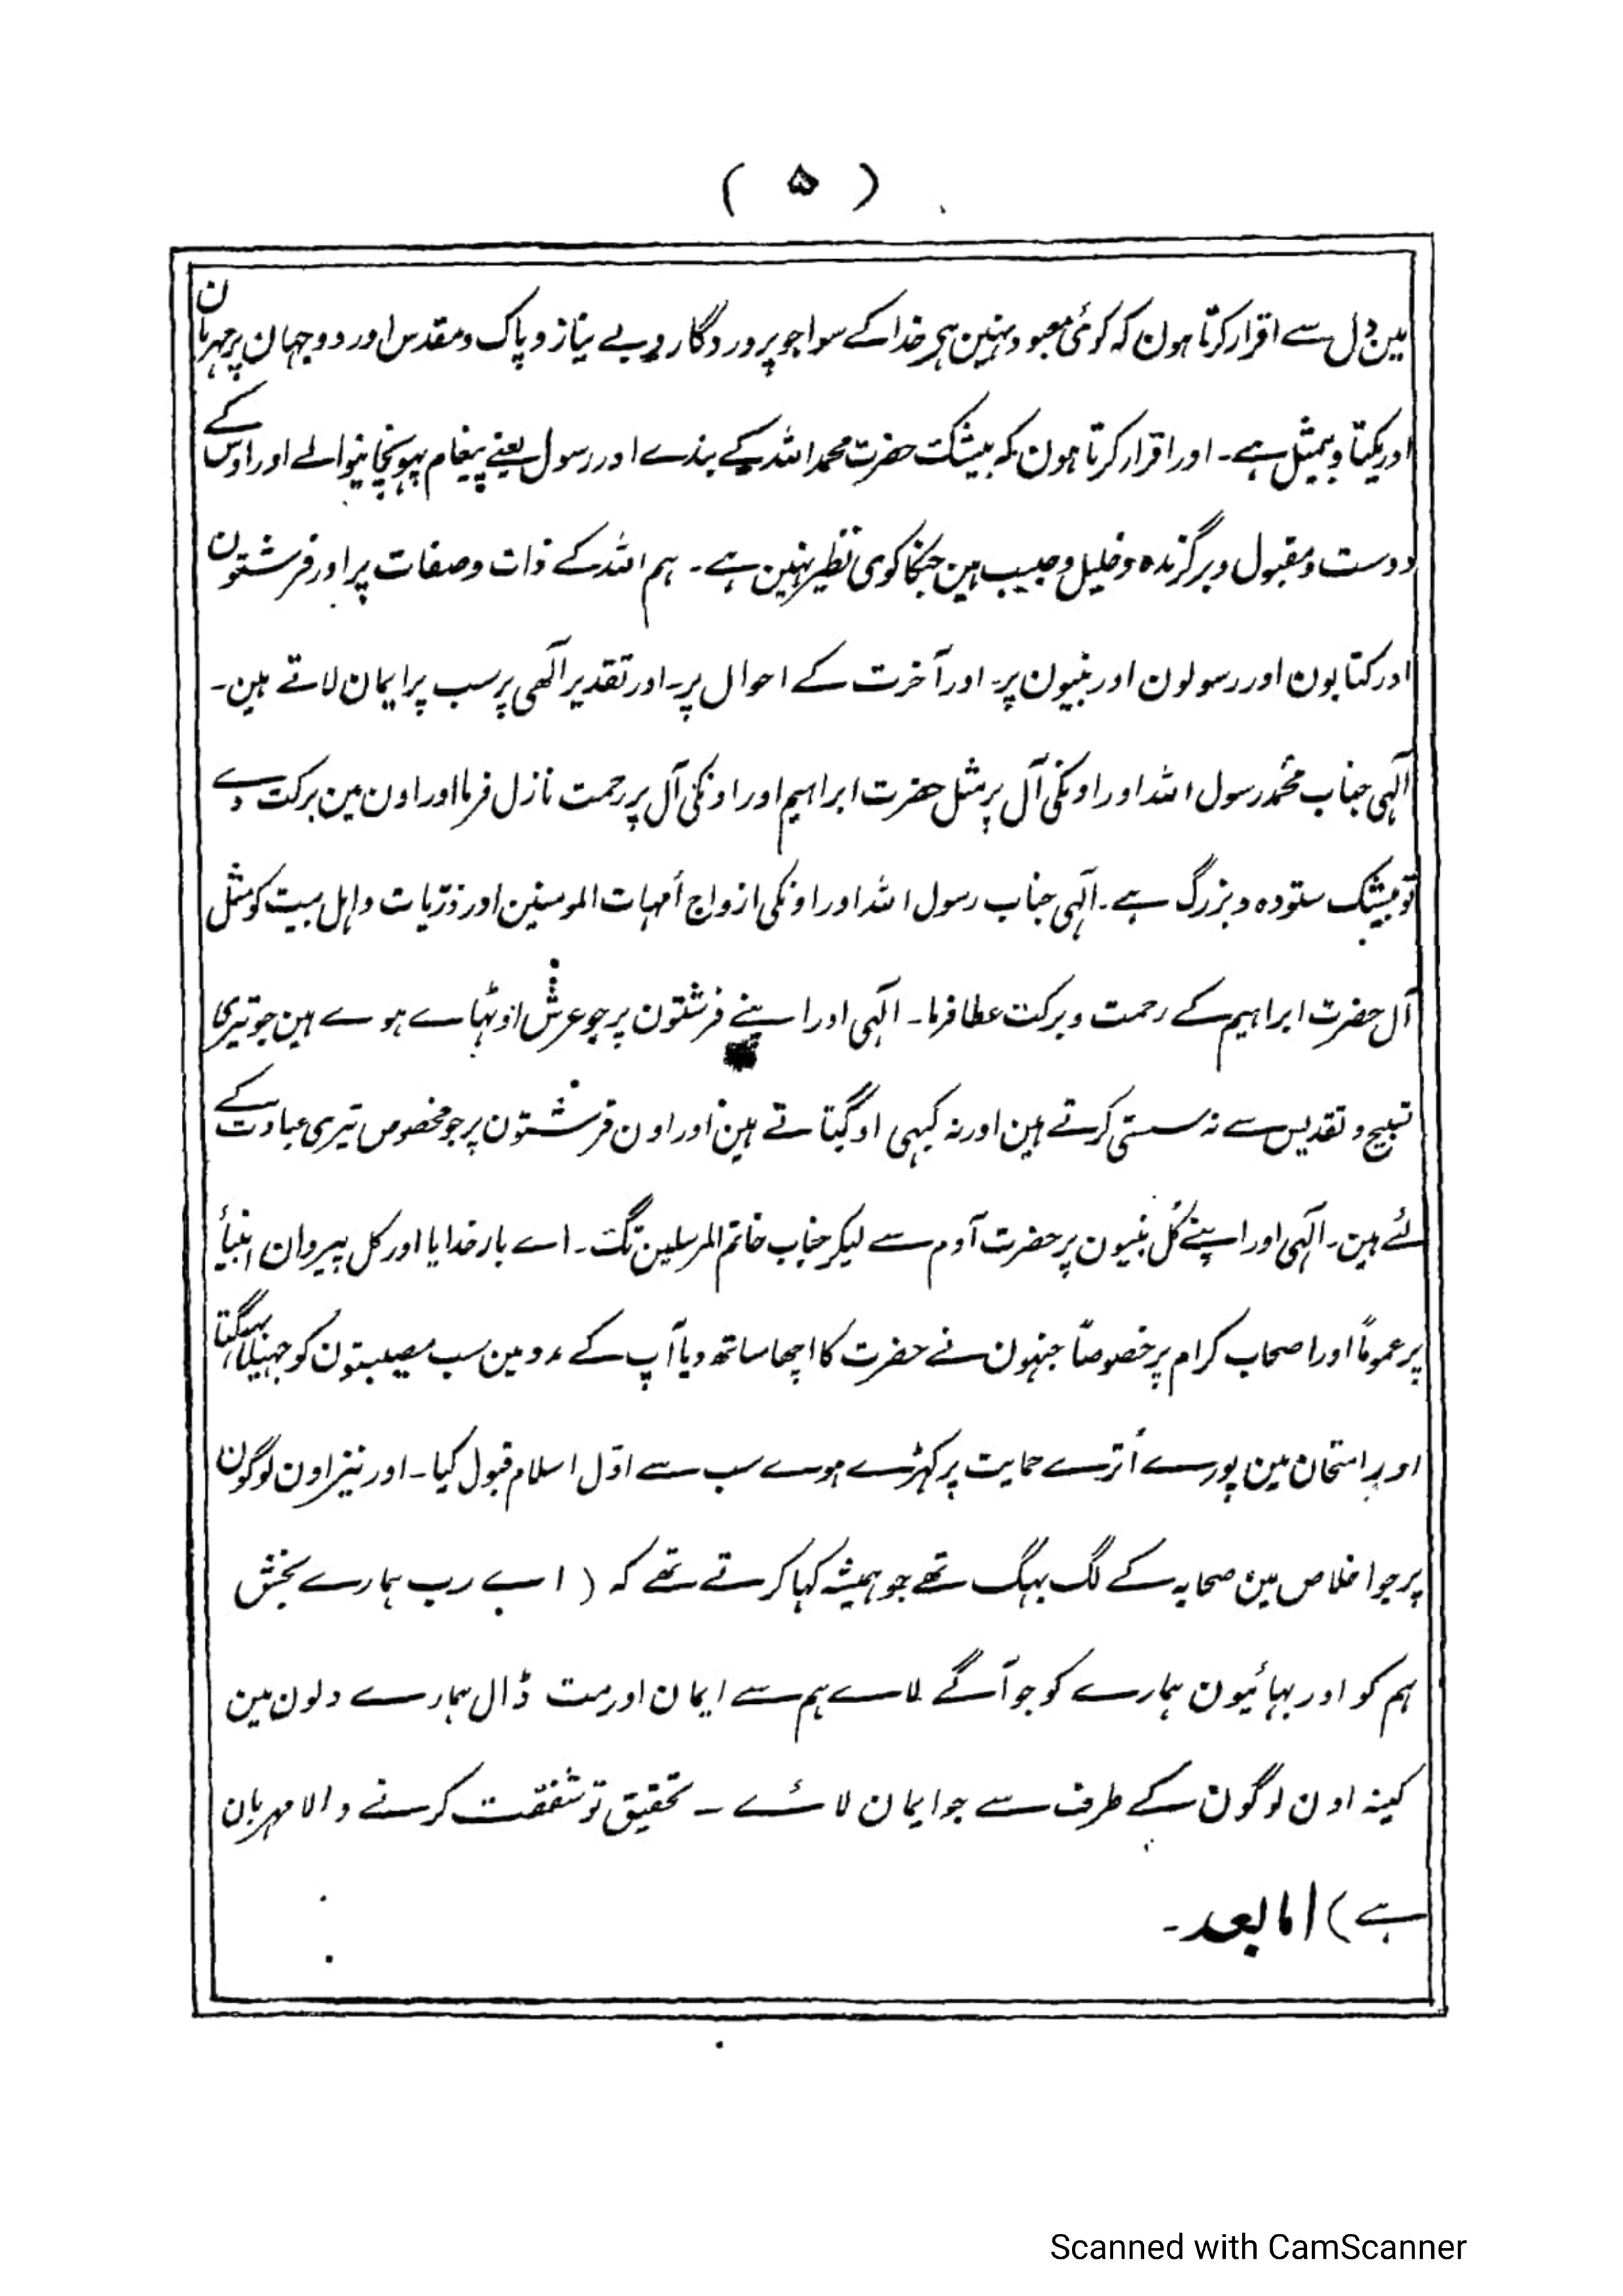 ( ۵ )
مین دل سے اقرار کرتا ہون کہ کوئی معبود نہین ہے خدا کے سوا جو پروردگار و بے نیاز و پاک و مقدس اور دو جہان پر مہربان
اور یکتا و بیمثل ہے۔ اور اقرار کرتا ہون کہ بیشک حضرت محمد اللہ کے بندے اور رسول یعنے پیغام پہونچانیوالے اور اوس کے
دوست و مقبول و برگزیدہ و خلیل و حبیب ہین جنکا کوی نظیر نہین ہے۔ ہم اللہ کے ذات و صفات پر اور فرشتون
اور کتابون اور رسولون اور نبیون پر۔ اور آخرت کے احوال پر۔ اور تقدیر الٰہی پر سب پر ایمان لاتے ہین۔
الٰہی جناب محمد رسول اللہ اور اونکی آل پر مثل حضرت ابراہیم اور اونکی آل پر رحمت نازل فرما اور اون مین برکت دے
تو بیشک ستودہ و بزرگ ہے۔ الٰہی جناب رسول اللہ اور اونکی ازواج اُمہات المومنین اور ذرّیات و اہل بیت کو مثل
آل حضرت ابراہیم کے رحمت و برکت عطا فرما۔ الٰہی اور اپنے فرشتون پر جو عرش اوٹہاے ہوے ہین جو تیری
تسبیح و تقدیس سے نہ سستی کرتے ہین اور نہ کبہی اوگتاتے ہین اور اون فرشتون پر جو مخصوص تیری عبادت کے
لئے ہین۔ الٰہی اور اپنے کُل نبیون پر حضرت آدم سے لیکر جناب خاتم المرسلین تک۔ اے بار خدایا اور کل پیروان انبیأ
پر عموماً اور اصحاب کرام پر خصوصاً جنہون نے حضرت کا اچھا ساتھ دیا آپ کے مدد مین سب مصیبتون کو جہیلا
اور امتحان مین پورے اُترے حمایت پر کہڑے ہوے سب سے اوّل اسلام قبول کیا۔ اور نیز اون لوگون
پر جو اخلاص مین صحابہ کے لگ بہگ تھے جو ہمیشہ کہا کرتے تھے کہ ( اے رب ہمارے بخش
ہم کو اور بہائیون ہمارے کو جو آگے لاے ہم سے ایمان اور مت ڈال ہمارے دلون مین
کینہ اون لوگون کے طرف سے جو ایمان لائے ۔ تحقیق تو شفقت کرنے والا مہربان
ہے) امابعد۔
Scanned with CamScanner